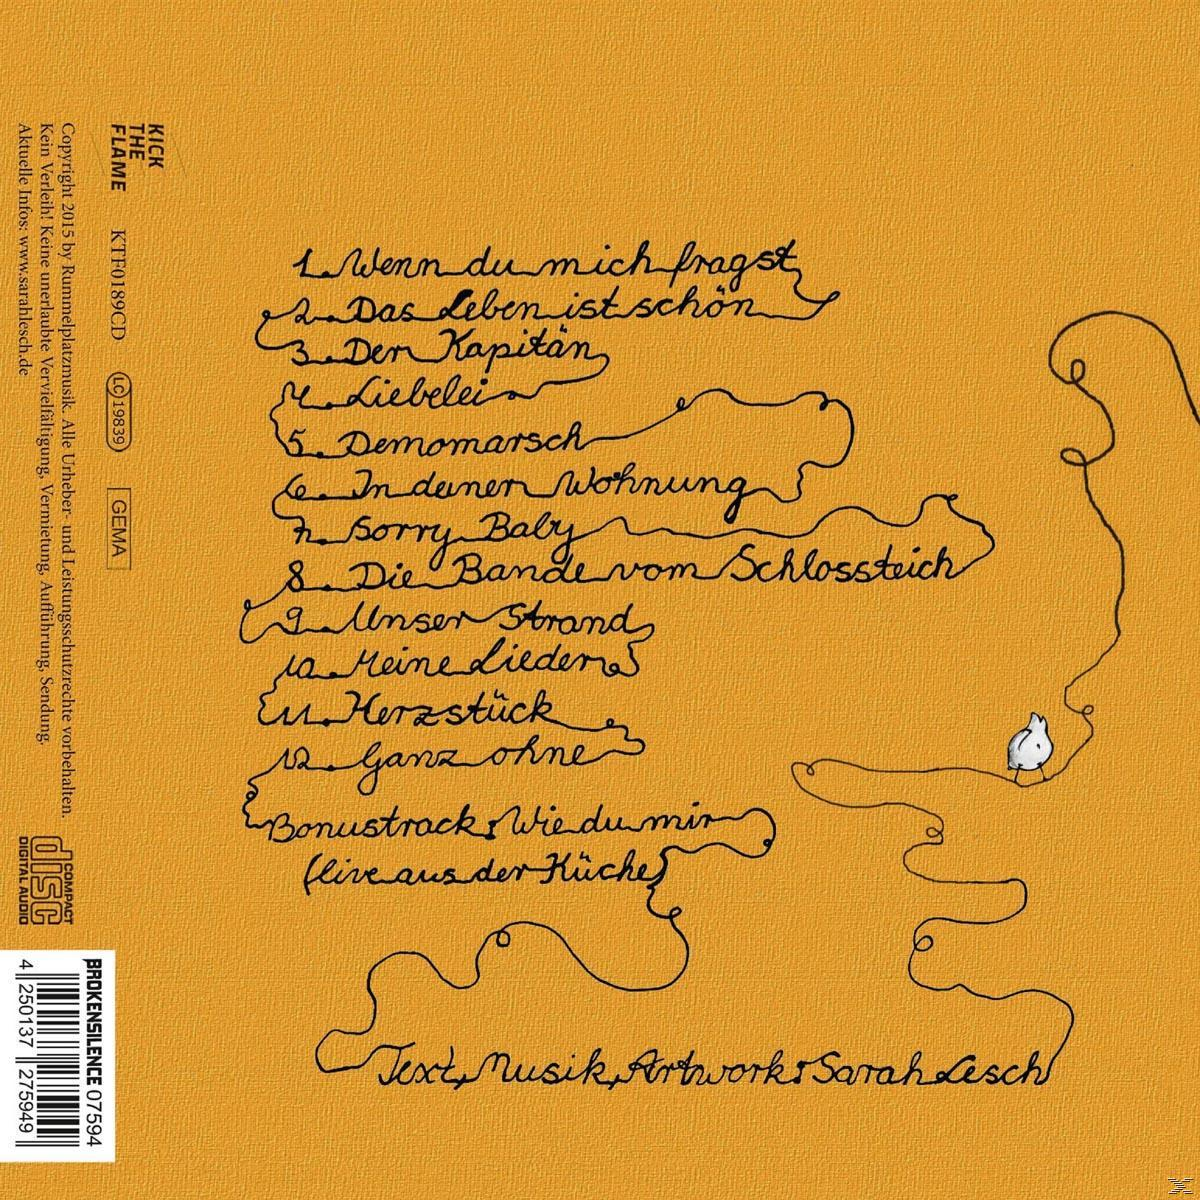 1. Wenn du mich fragst
2. Das Leben ist schön
3. Der Kapitän
4. Liebelei
5. Demomarsch
6. In deiner Wohnung
7. Sorry Baby
8. Die Bande vom Schlossteich
9. Unser Strand
10. Meine Lieder
11. Herzstück
12. Ganz ohne
Bonustrack: Wie du mir
(live aus der Küche)
Text, Musik, Artwork: Sarah Lesch
KICK
THE
FLAME
KTF0189CD
LC 19839
GEMA
Copyright 2015 by Rummelplatzmusik. Alle Urheber- und Leistungsschutzrechte vorbehalten.
Kein Verleih! Keine unerlaubte Vervielfältigung, Vermietung, Aufführung, Sendung.
Aktuelle Infos: www.sarahlesch.de
COMPACT
disc
DIGITAL AUDIO
BROKENSILENCE 07594
4 250137 275949